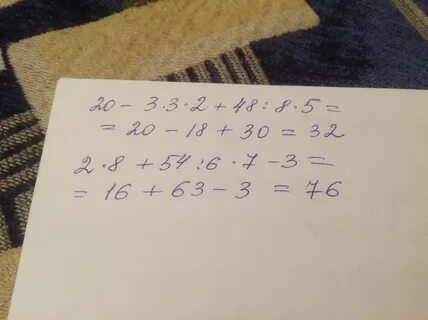 20 - 3·3·2 + 48 : 8·5 =
= 20 - 18 + 30 = 32
2·8 + 54 : 6·7 - 3 =
= 16 + 63 - 3 = 76